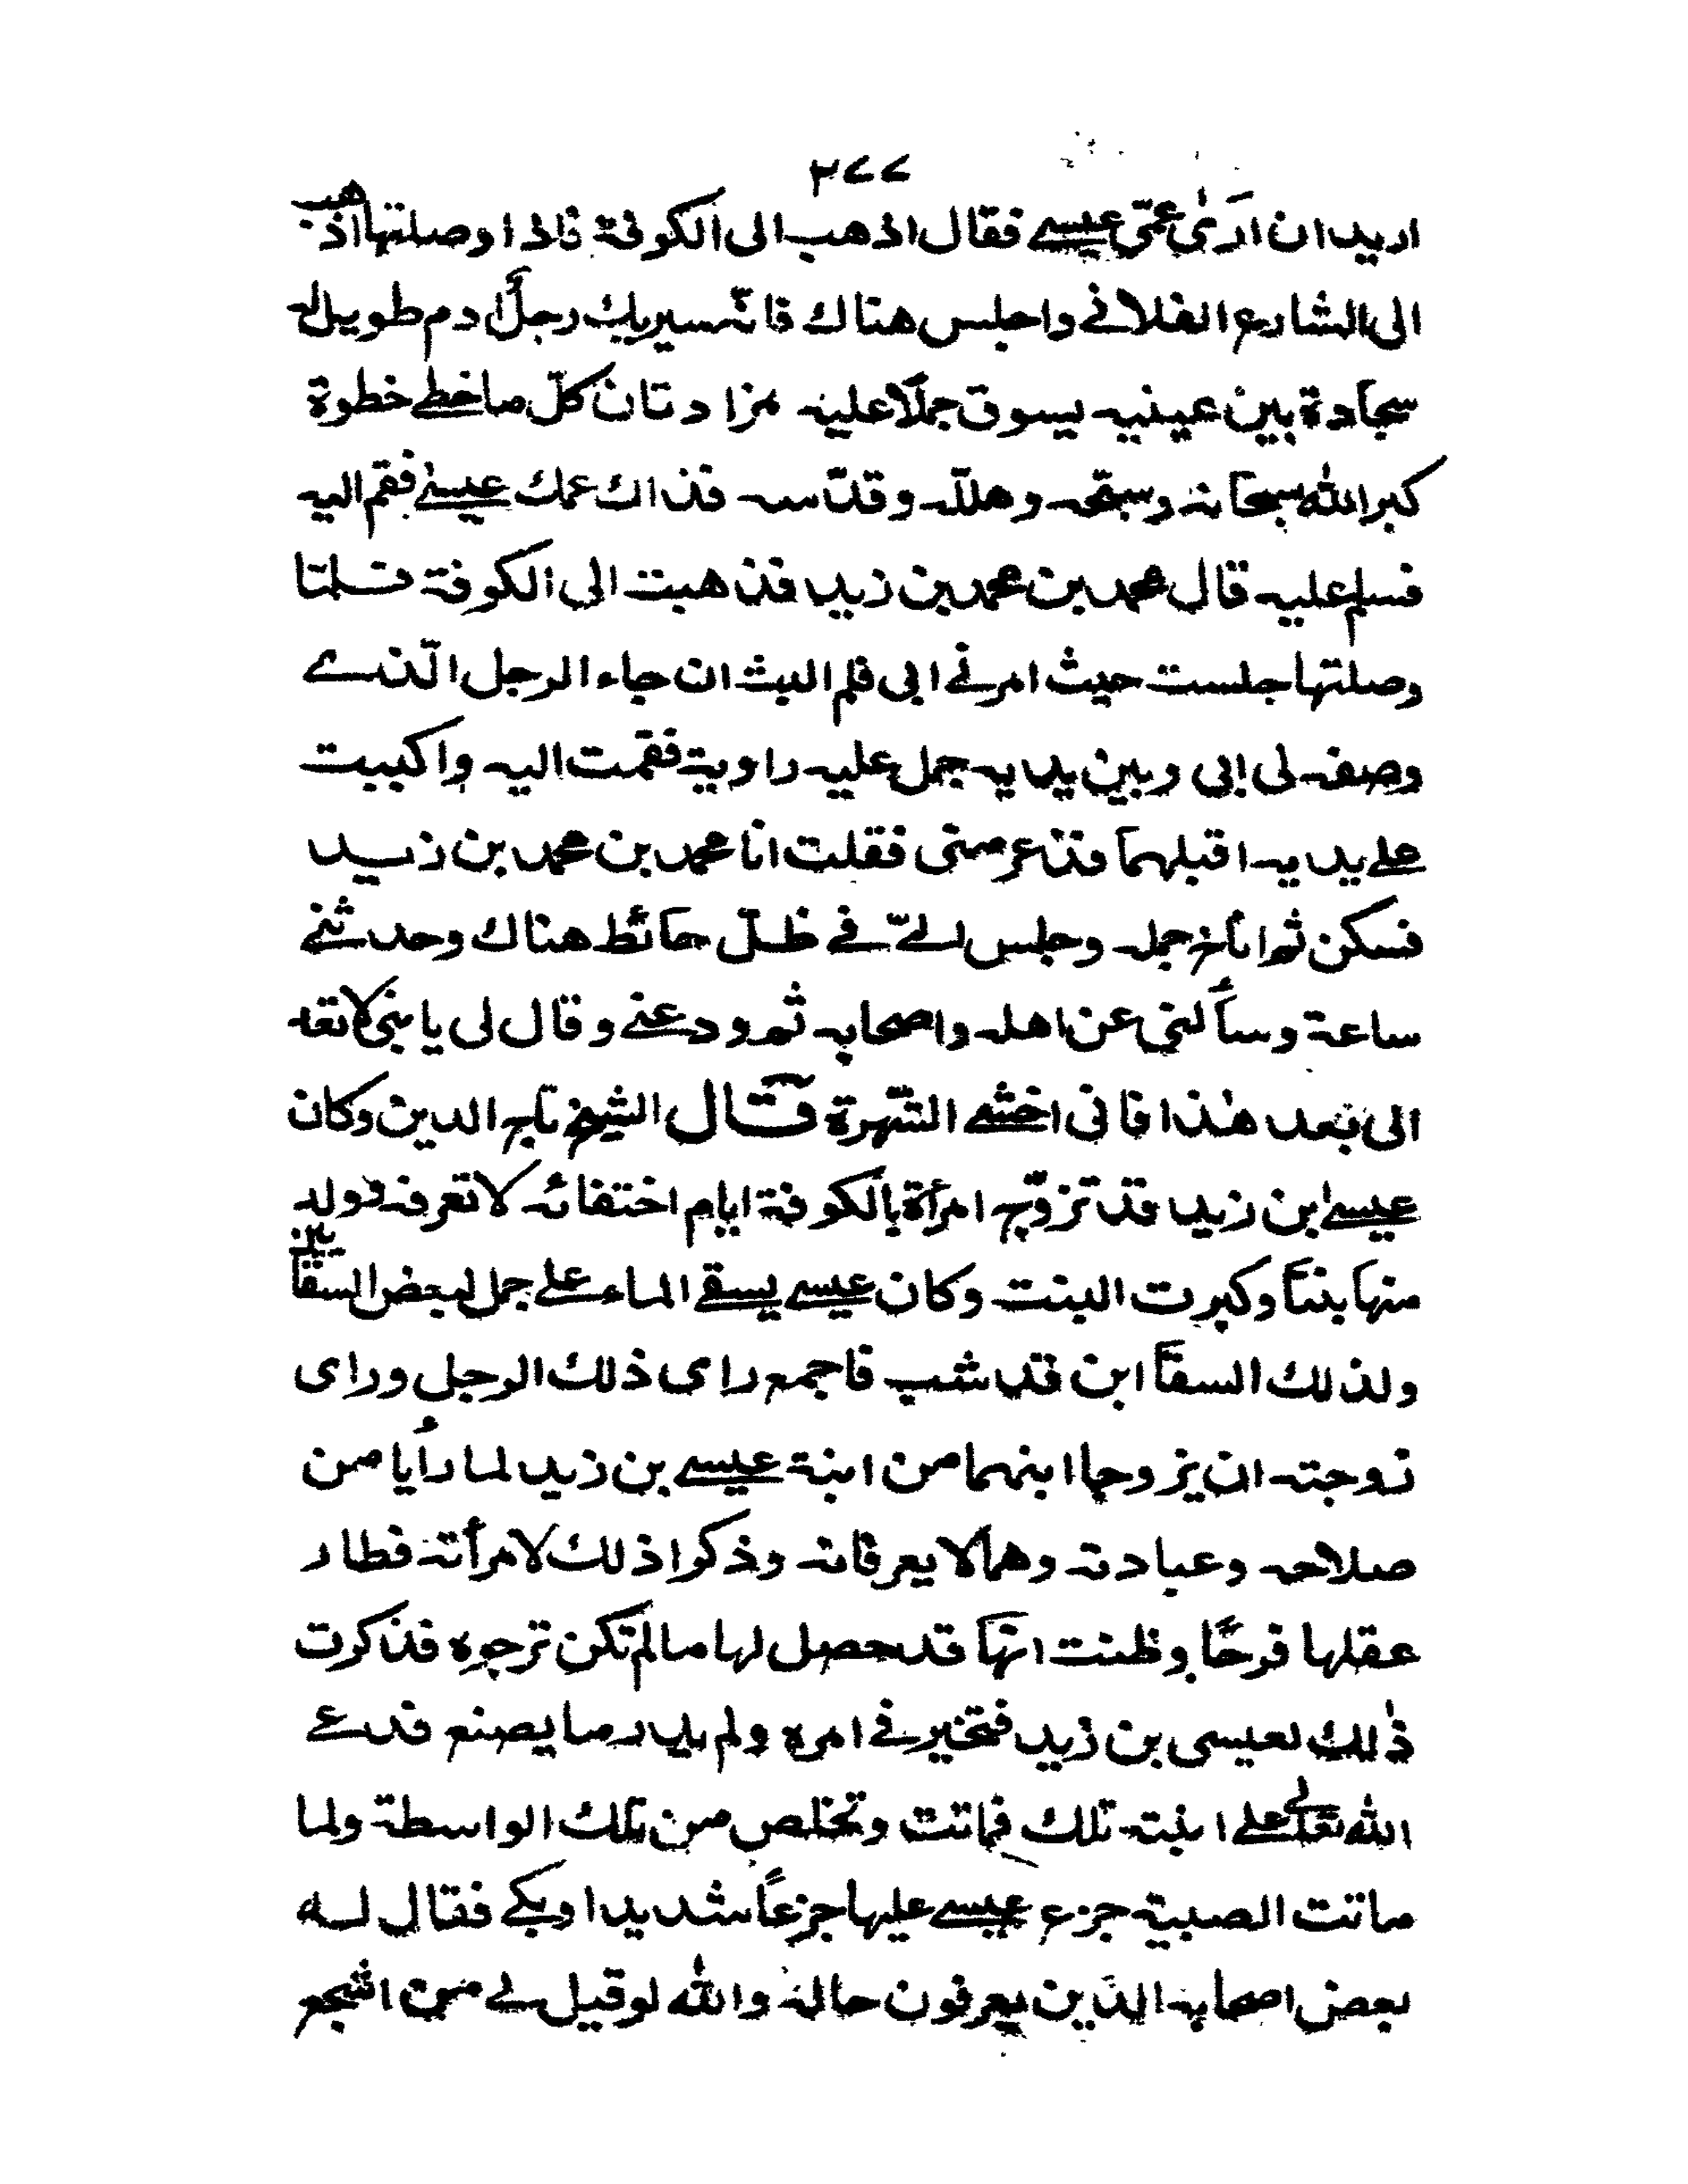 ٢٧٧
اريد ان ارَىٰ عمّي عيسے فقال اذهب الى الكوفة فاذا وصلتها اذهب
الى الشارع الفلانے واجلس هناك فانّه سيريك رجلٌ ادم طويل له
سجادة بين عينيه يسوق جملًا عليه مزادتان كلّ ما خطے خطوة
كبر الله سبحانه وسبّحه وهلله وقدّسه فذاك عمك عيسےٰ فقم اليه
فسلم عليه قال محمد بن محمد بن زيد فذهبت الى الكوفة فلمّا
وصلتها جلست حيث امرنے ابى فلم البث ان جاء الرجل الّذے
وصفه لى ابى وبين يديه جمل عليه راوية فقمت اليه واكببت
علے يديه اقبلهما فذعر منى فقلت انا محمد بن محمد بن زيد
فسكن ثم اناخ جمله وجلس الےّ فے ظلّ حائط هناك وحدثنے
ساعة وسألنى عن اهله واصحابه ثم ودعنے وقال لى يا بنى لا تعد
الى بعد هٰذا فانى اخشے الشّهرة قال الشيخ تاج الدين وكان
عيسےٰ بن زيد قد تزوّج امرأة بالكوفة ايام اختفائه لا تعرفه فولد
منها بنتاً وكبرت البنت وكان عيسے يسقے الماء علے جمل لبعض السقائين
ولذلك السقّا ابن قد شب فاجمع راى ذلك الرجل وراى
زوجته ان يزوجا ابنهما من ابنة عيسے بن زيد لما رأيا من
صلاحه وعبادته وهما لا يعرفانه وذكرا ذلك لامرأته فطار
عقلها فرحًا وظنت انّها قد حصل لها ما لم تكن ترجوه فذكرت
ذٰلك لعيسى بن زيد فتحير فے امره ولم يدر ما يصنع فدعے
الله تعالے علے ابنته تلك فماتت وتخلص من تلك الواسطة ولما
ماتت الصبية جزع عيسے عليها جزعاً شديدا وبكے فقال له
بعض اصحابه الذين يعرفون حاله والله لو قيل لے من اشجع